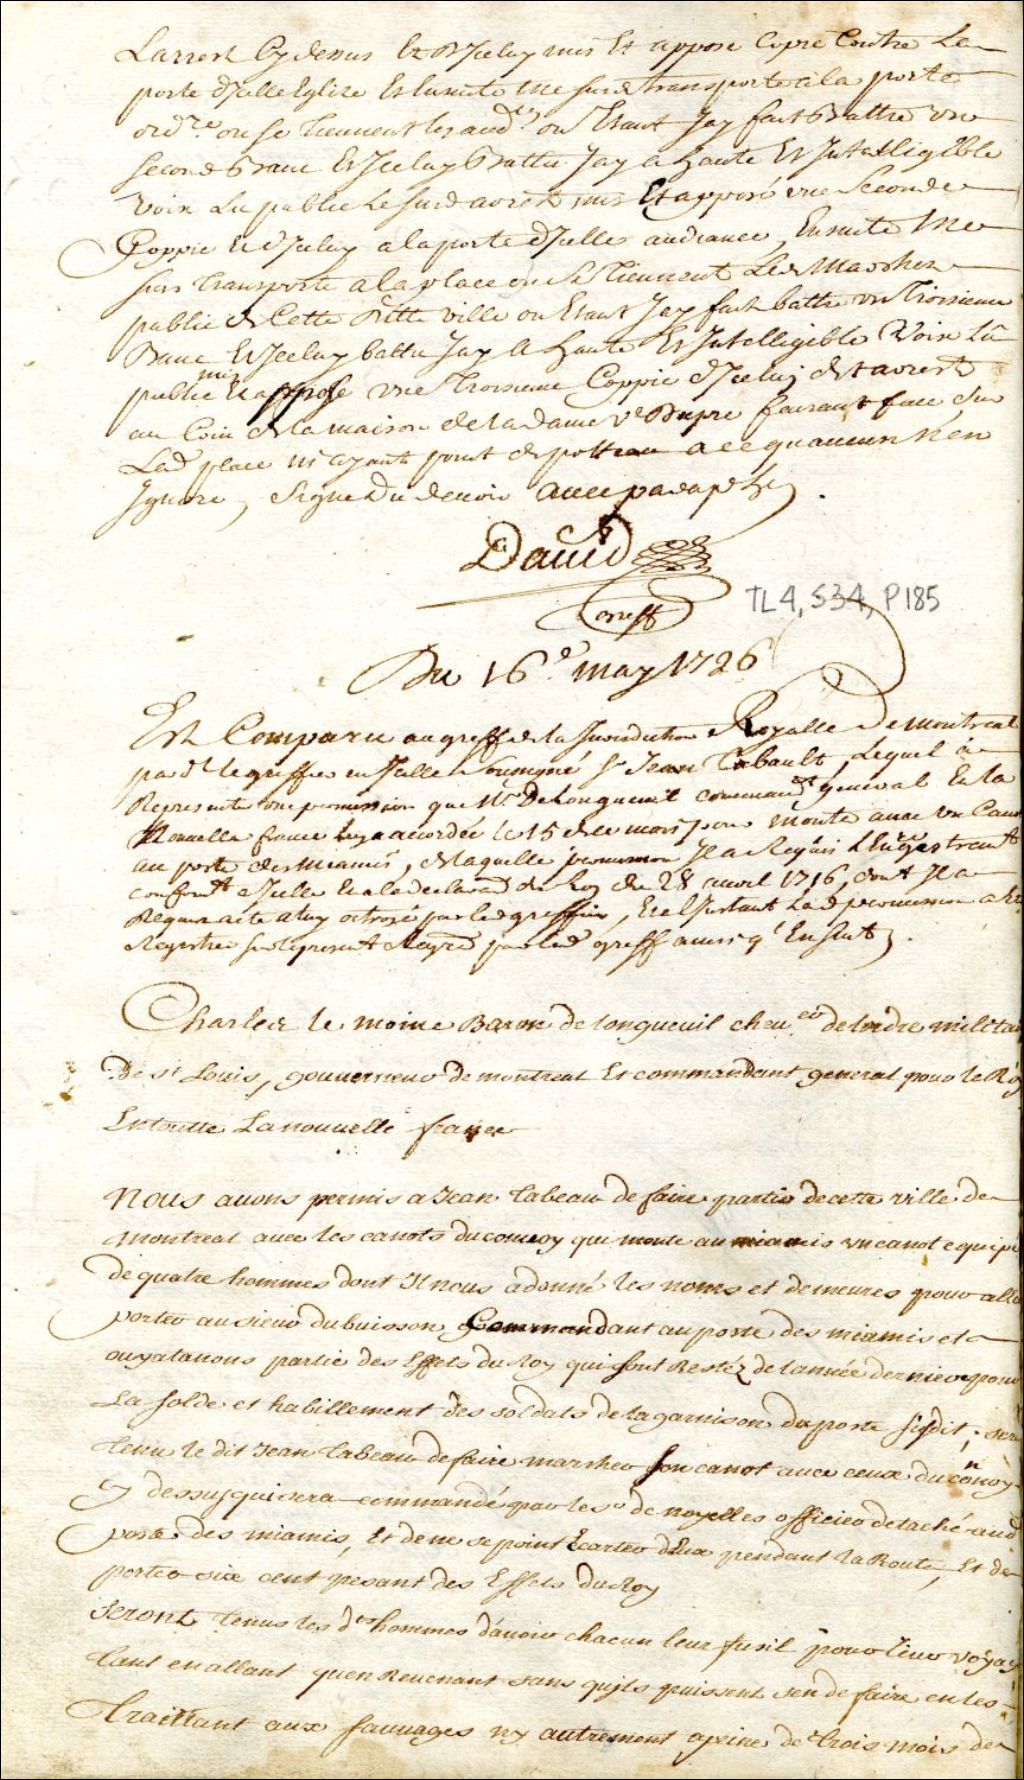 Larrest Cy dessus Et d'Jceluy mis Et apposé Copie Contre La
porte d'Jcelle Eglise Et Ensuite me suis transporté a la porte
ordre ou se tiennent les audces ou Etant Jay fait Battre un
second Banc Et Jceluy Battu Jay a haute Et Jntelligible
voix Lu publié Le susd arrest mis Et apposé une Seconde
Coppie d'Jceluy a la porte d'Jcelle audiance, Ensuite me
suis transporté a la place ou Se tiennent Les Marchez
public de Cette ditte ville ou Etant Jay fait battre un troisieme
Banc Et Jceluy battu Jay a haute Et Jntelligible Voix Lû
publié mis Et apposé une troisieme Coppie d'Jceluj arrest
au Coin de la maison de la dame ve Dupre faisant face Sur
Lad place ny ayant point de potteau a ce quaucun n'en
Jgnore, Signé du devoir avec paraphe.
David
Greff
TL4, S34, P185
Du 16e may 1726
Est Comparu au greffe de la Jurisdiction Royalle De montreal
pard le greffier en Jcelle Soussigné Sr Jean Tabault, Lequel à
Representé une permission que Mr De Longueuil commandt général En la
Nouvelle france luy a accordée le 15 de ce mois pour monter avec un Canot
au poste des Miamis, de laquelle permission Jl a Requis L'Enregistrement
conformt a Jcelle Et a la declaraon du Roy du 28 avril 1716, dont Jl a
Requis acte a luy octroyé par led greffier, Et a l'Jnstant Lad permission a Eté
Registrée sur le present Regre par led greff ainsi q' Ensuit.
Charles le moine Baron de longueuil cheuer de lordre militai
De st Louis, gouuerneur de montreal Et commandant general pour le Roy
En toutte La nouuelle france
Nous auons permis a Jean tabeau de faire partir de cette ville de
montreal auec les canots du conuoy qui monte au miamis vn canot equipé
de quatre hommes dont Jl nous a donné les noms et demeures pour aller
porter au sieur dubuisson Commandant au poste des miamis et
ouyatanons partie des Effets du Roy qui sont Restéz de l'année derniere pour
La solde et habillement des soldats de la garnison du poste susdit; sera
tenu le dit Jean tabeau de faire marcher son canot auec ceux du conuoy
cy dessus qui sera commandé par le sr de noyelles officier detaché aud
poste des miamis, Et de ne se point Ecarter d'Eux pendant la Route, Et de
porter six cent pesant des Effets du Roy
Seront tenus les dts hommes dauoir chacun leur fusil pour leur voyage
tant en allant quen Reuenant sans quils puissent sen defaire en les
traittant aux sauuages ny autrement apeine de trois mois de